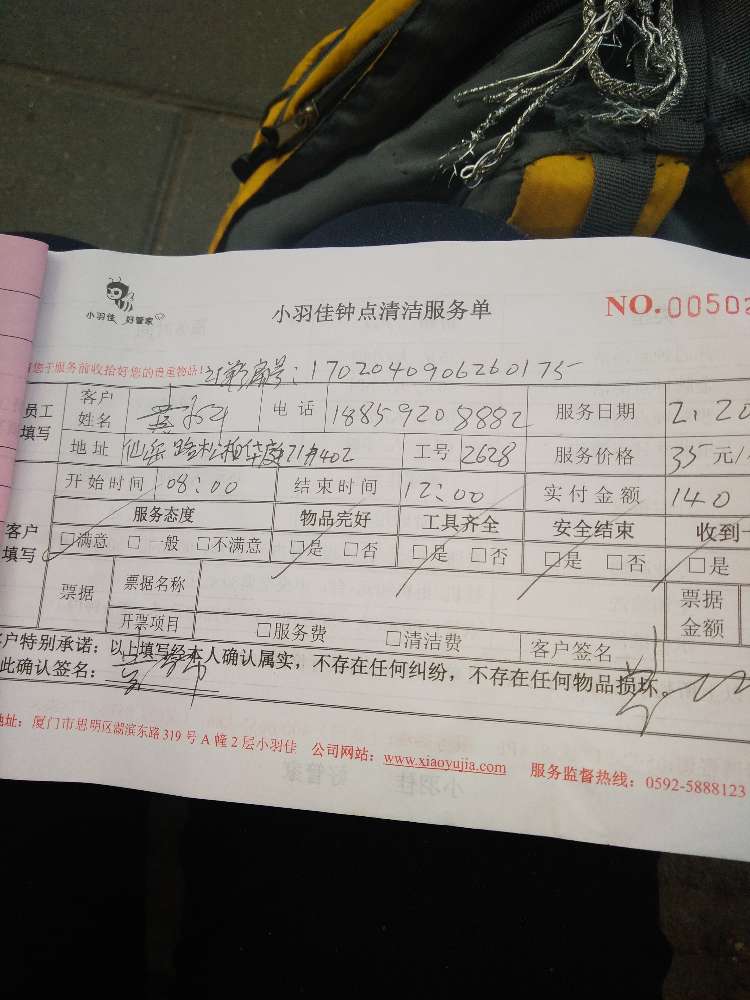 小羽佳 好管家
小羽佳钟点清洁服务单
NO.00502
您于服务前收拾好您的贵重物品!
订单编号:1702040906260175
员工填写 客户姓名 电话 18859208882 服务日期 2.20
地址 仙岳路松柏华庭21#402 工号 2628 服务价格 35元/
开始时间 08:00 结束时间 12:00 实付金额 140
客户填写 服务态度 物品完好 工具齐全 安全结束 收到一
□满意 □一般 □不满意 □是 □否 □是 □否 □是 □否 □是
票据 票据名称 票据金额
开票项目 □服务费 □清洁费 客户签名
户特别承诺:以上填写经本人确认属实,不存在任何纠纷,不存在任何物品损坏。
此确认签名:
地址:厦门市思明区湖滨东路319号A幢2层小羽佳 公司网站:www.xiaoyujia.com 服务监督热线:0592-5888123